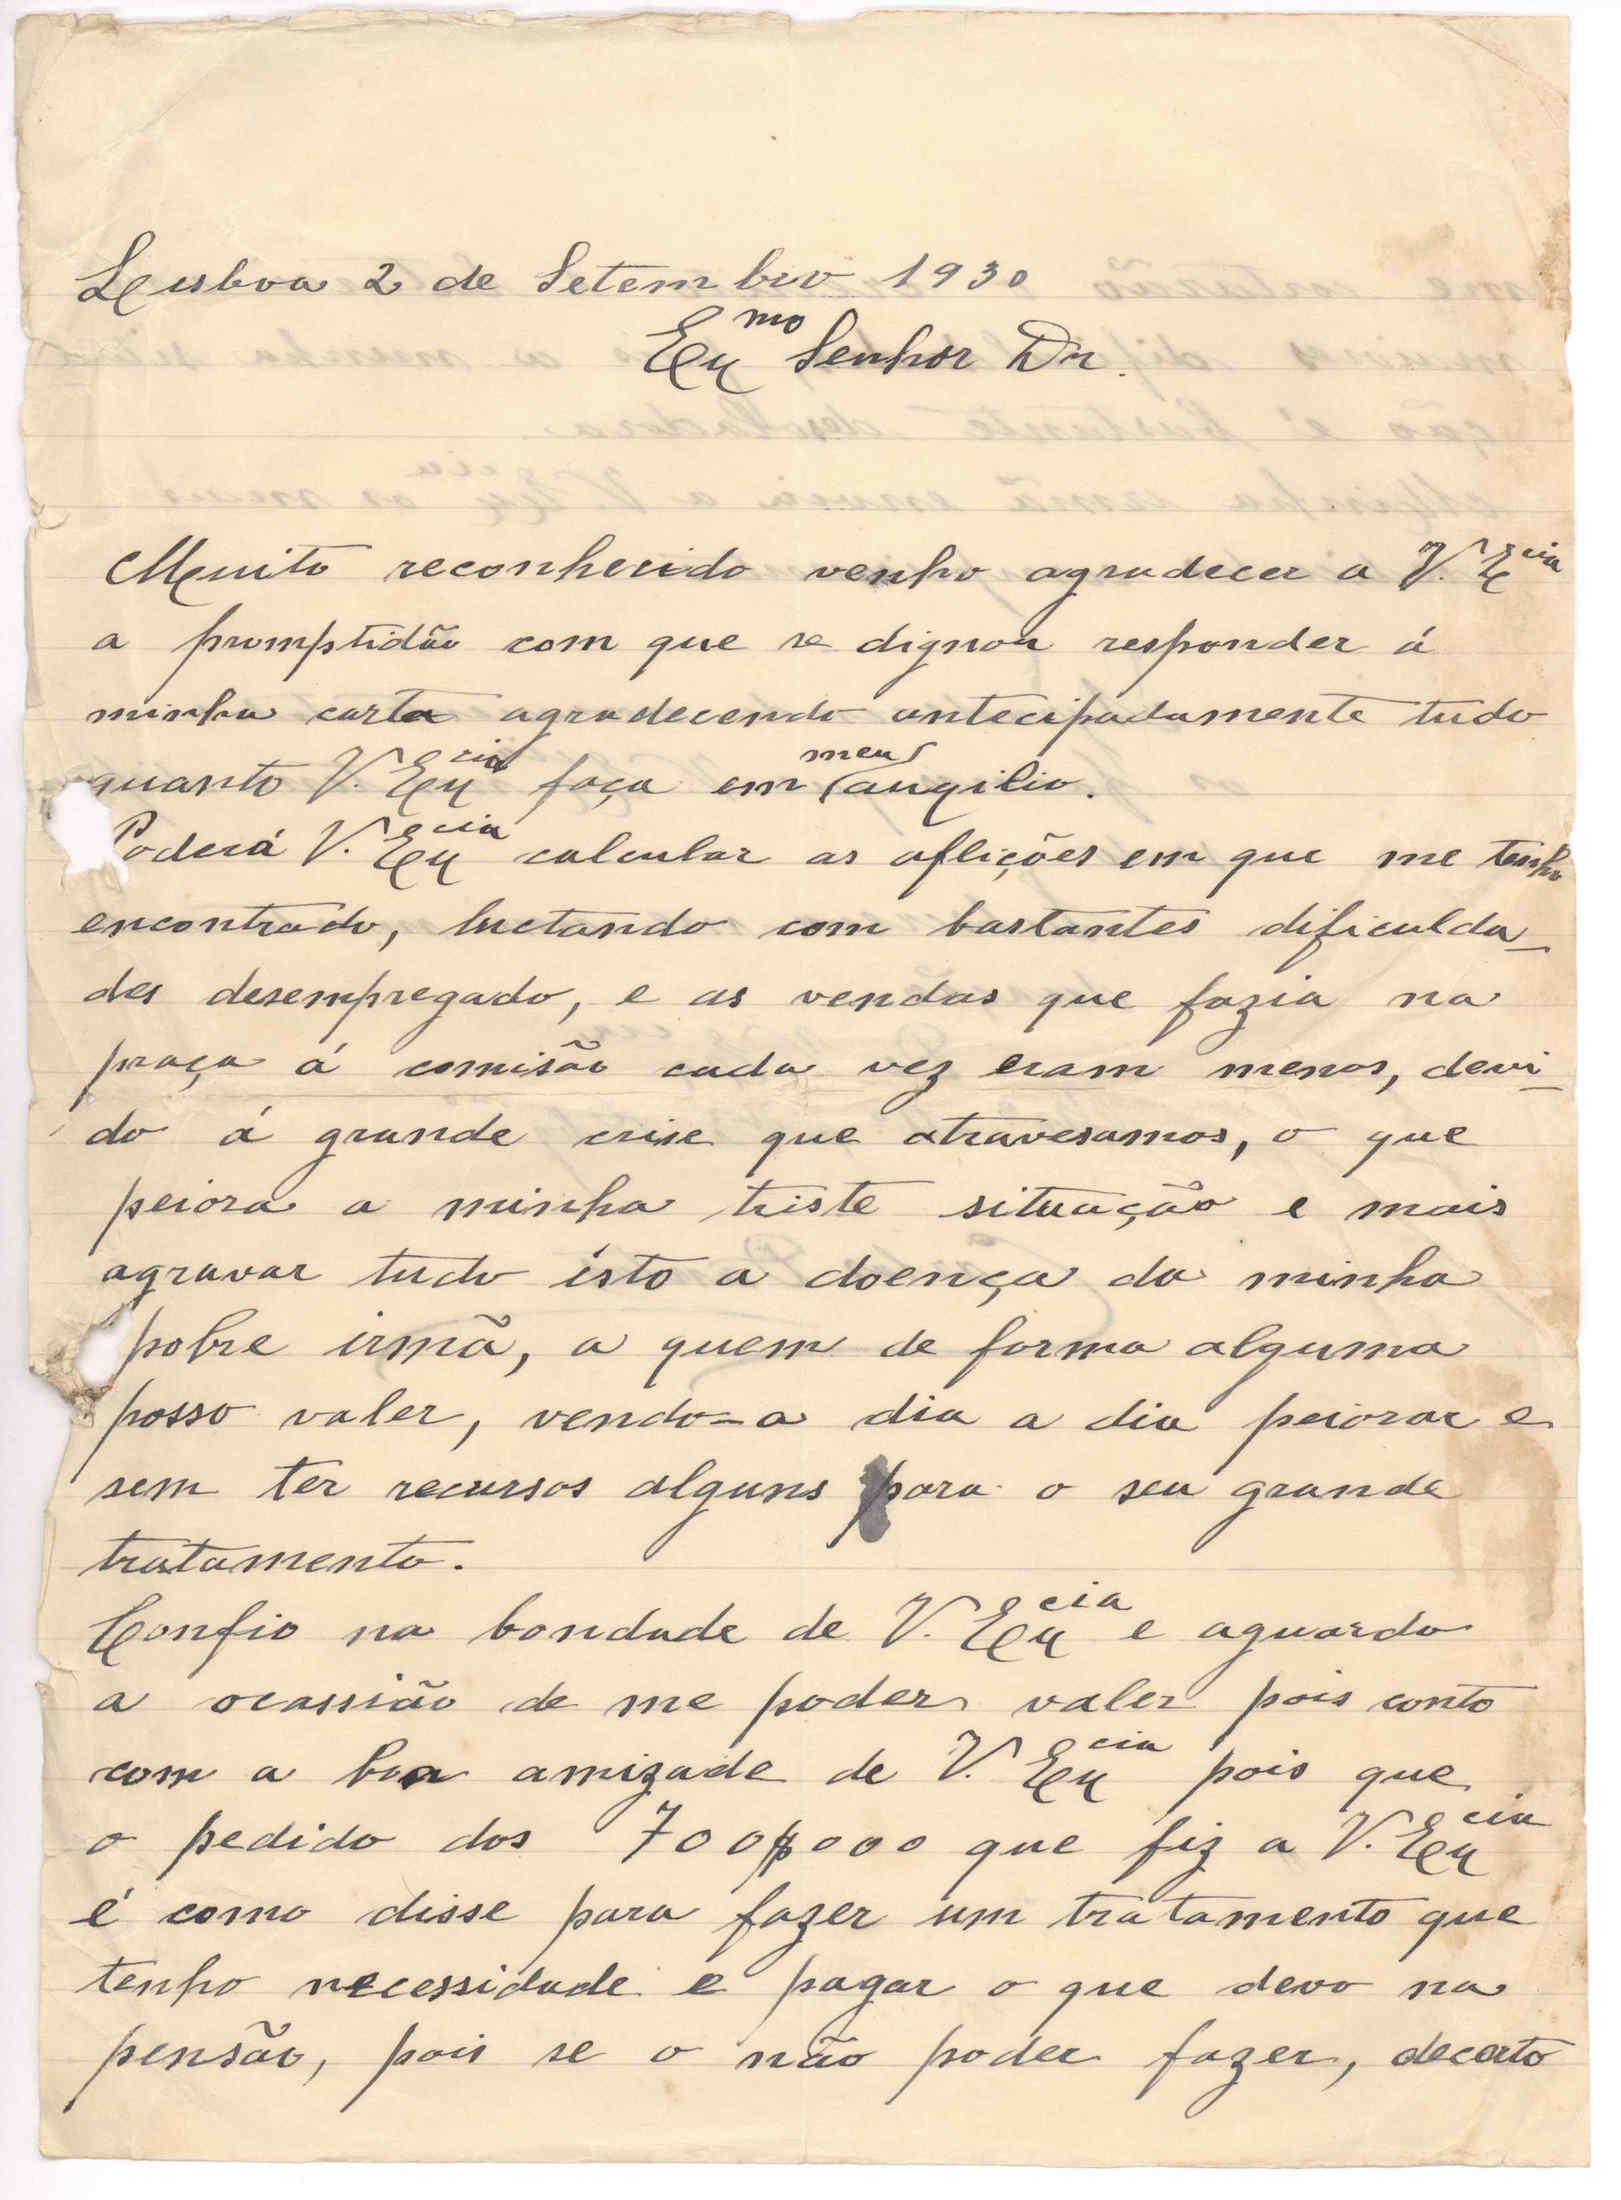 Lisboa 2 de Setembro 1930
Exmo Senhor Dr.
Muito reconhecido venho agradecer a V. Excia
a promptidão com que se dignou responder á
minha carta agradecendo antecipadamente tudo
quanto V. Excia faça em meu auxilio.
Poderá V. Excia calcular as aflições em que me tenho
encontrado, luctando com bastantes dificulda-
des desempregado, e as vendas que fazia na
praça á comisão cada vez eram menos, devi-
do á grande crise que atravesamos, o que
peiora a minha triste situação e mais
agravar tudo isto a doença da minha
pobre irmã, a quem de forma alguma
posso valer, vendo-a dia a dia peiorar e
sem ter recursos alguns para o seu grande
tratamento.
Confio na bondade de V. Excia e aguardo
a ocassião de me poder valer pois conto
com a boa amizade de V. Excia pois que
o pedido dos 700$000 que fiz a V. Excia
é como disse para fazer um tratamento que
tenho necessidade e pagar o que devo na
pensão, pois se o não poder fazer, decerto